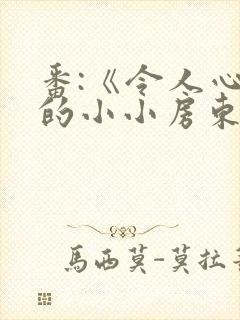 番:《令人心
的小小房東
馬西莫-莫拉